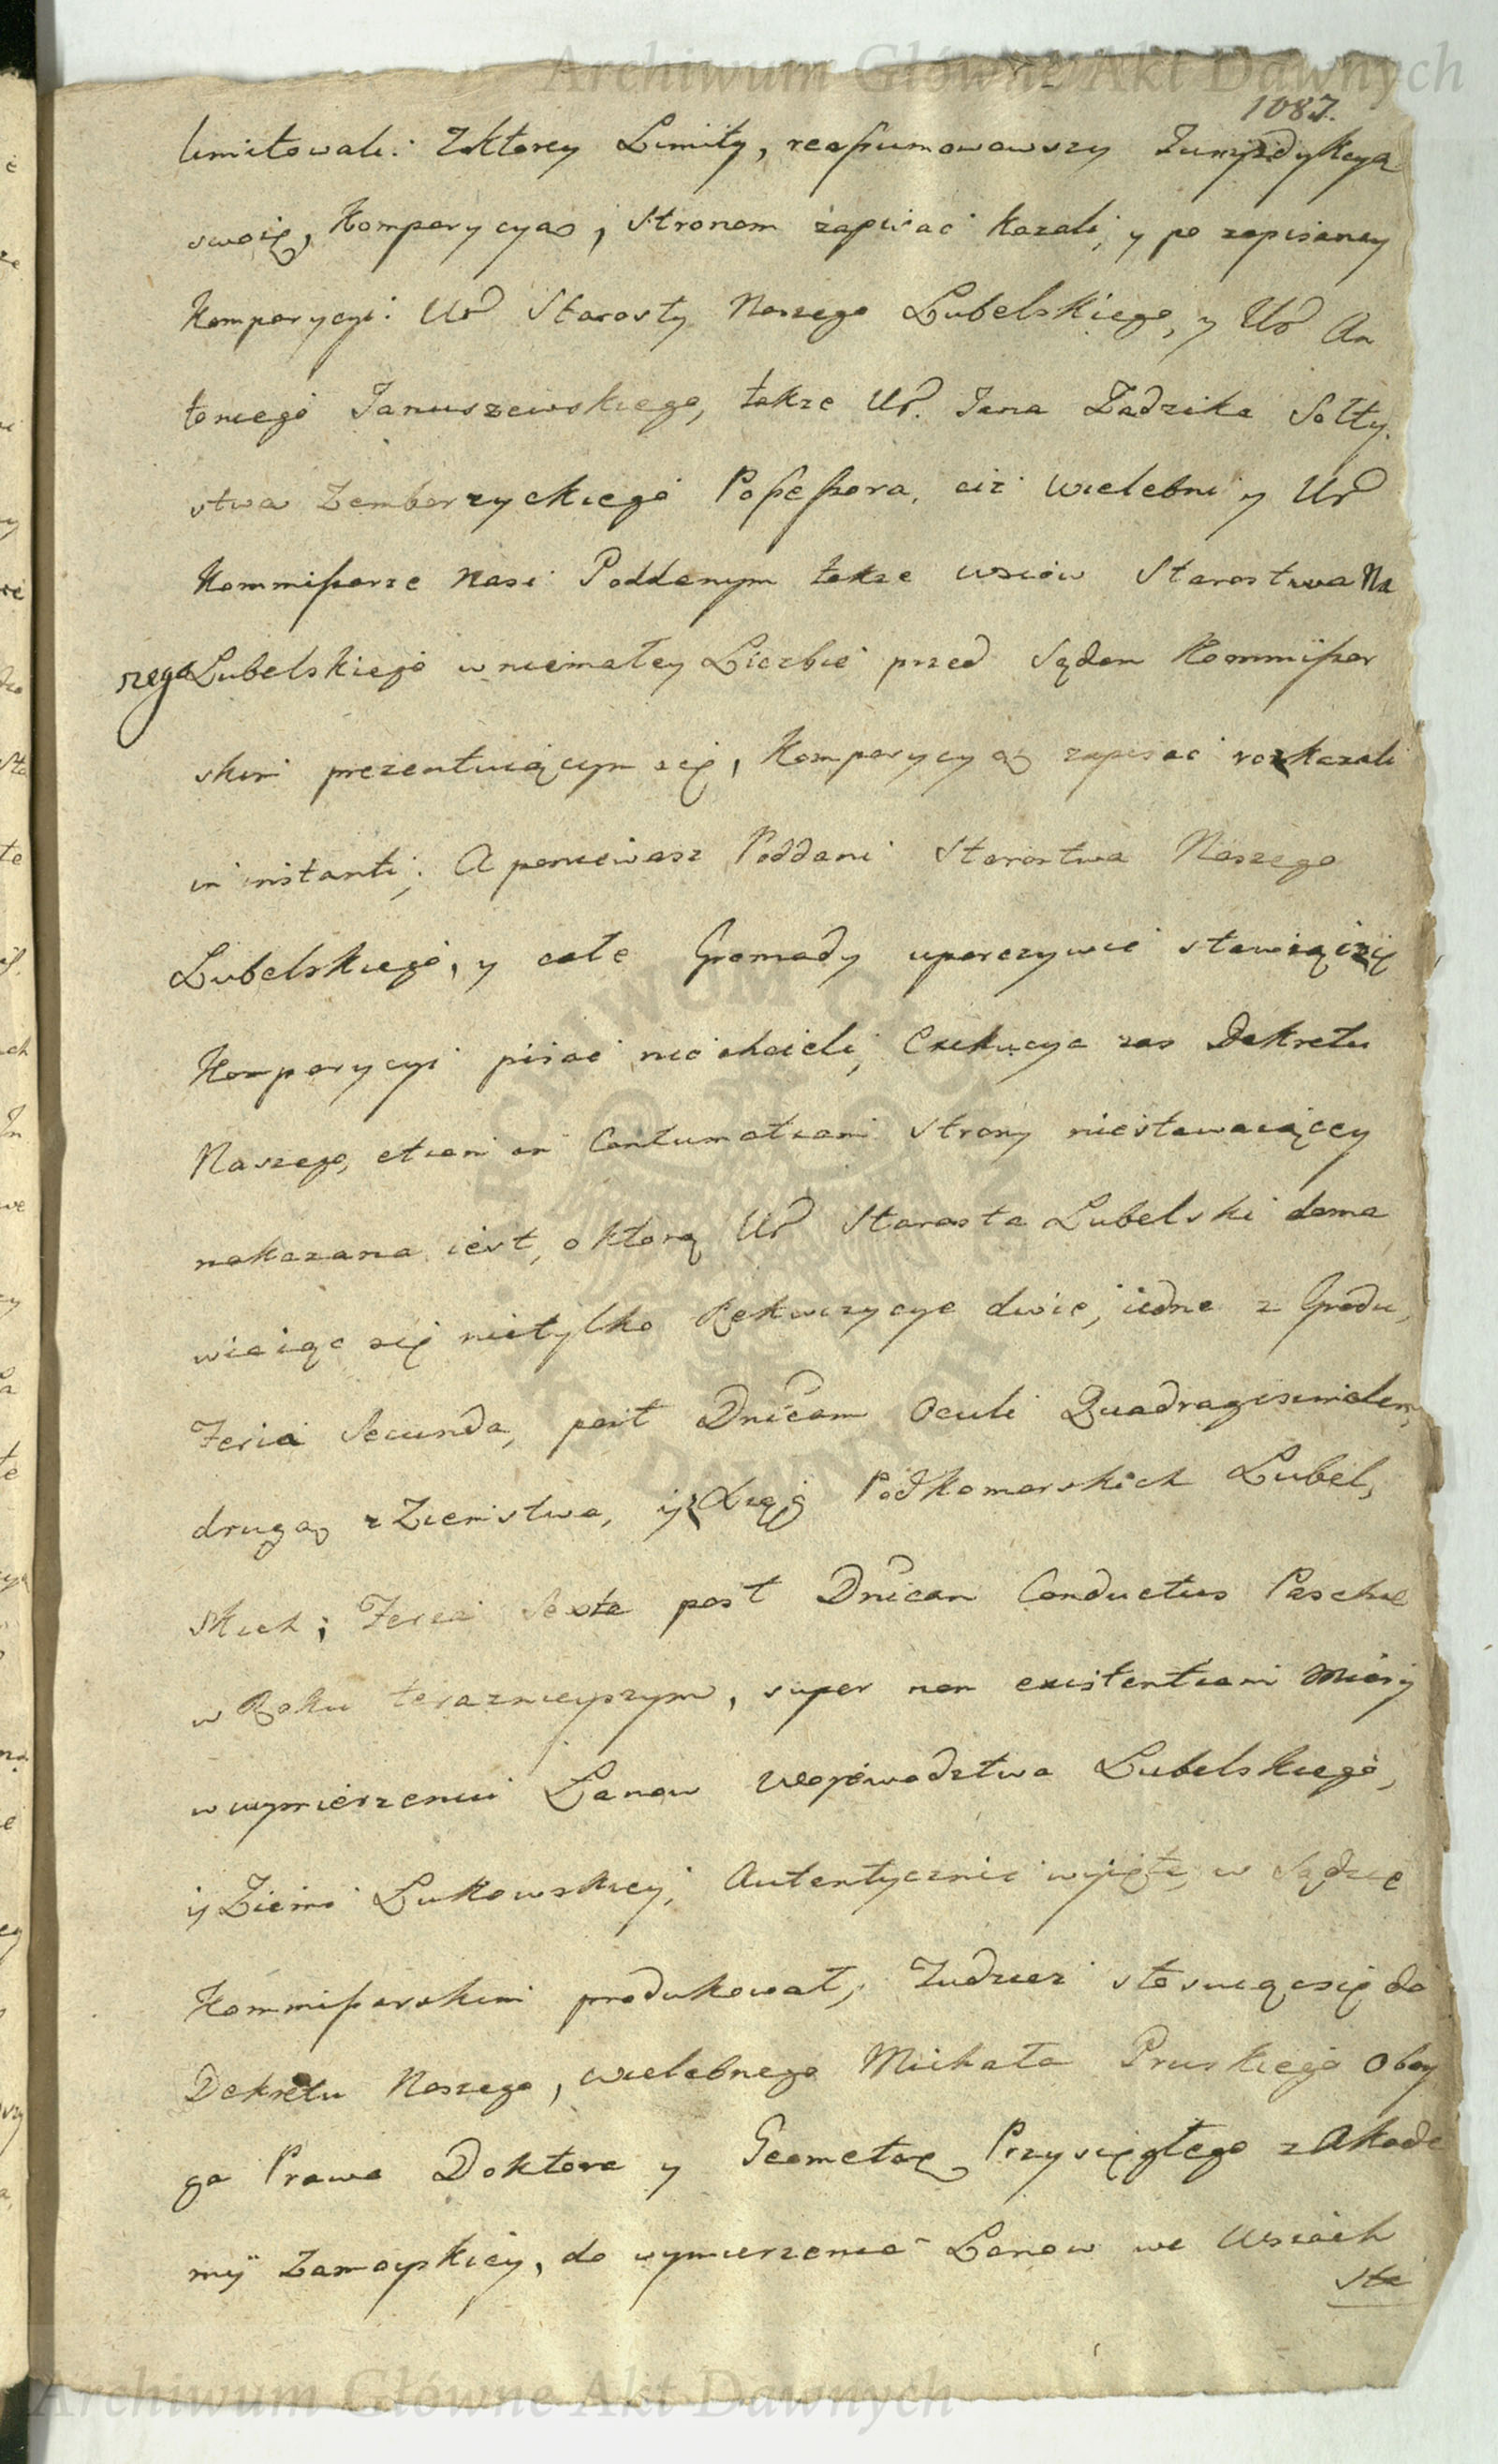 Archiwum Główne Akt Dawnych
1087.
limitowali. Zktorey Limity, reassumowawszy Juryzdykcyą
swoię, Komparycyą, Stronom zapisać kazali, y po zapisaney
Komparycyi Ur Starosty Naszego Lubelskiego, y Ur An
toniego Januszewskiego, także Ur. Jana Zadzika Sołty.
stwa Zemborzyckiego Possessora, ciż Wielebni y Ur
Kommissarze Nasi Poddanym także wsiów Starostwa Na
szego Lubelskiego w niemałey Liczbie przed Sądem Kommissar
skim prezentuiącym się, Komparycyą zapisać rozkazali
in instanti; A poniewasz Poddani Starostwa Naszego
Lubelskiego, y całe Gromady uporczywie stawiąc się
Komparycyi pisać nie chcieli, Exekucya zas Dekretu
Naszego, etiam in Contumatiam Strony niestawaiącey
nakazana iest, o ktorą Ur Starosta Lubelski doma
wiaiąc się nietylko Rekwizycye dwie, iedne z Grodu,
Feria Secunda, post Dnicam Oculi Quadragesimalem,
drugą z Ziemstwa, iż Xiąg Podkomorskich Lubel,
skich; Feria Sexta post Dnicam Conductus Paschae
w Roku teraznieyszym, super non existentiam Miary
w wymierzeniu Łanow Woiewodztwa Lubelskiego,
iy Ziemi Łukowskiey, Autentycznie wyięte, w Sądzie
Kommissarskim produkował, Tudzież stosuiąc się do
Dekretu Naszego, wielebnego Michała Pruskiego Oboy
ga Prawa Doktora y Geometrę Przysięgłego z Akade
mij Zamoyskiey, do wymierzenia Łanow we Wsiach
Sta
Archiwum Główne Akt Dawnych